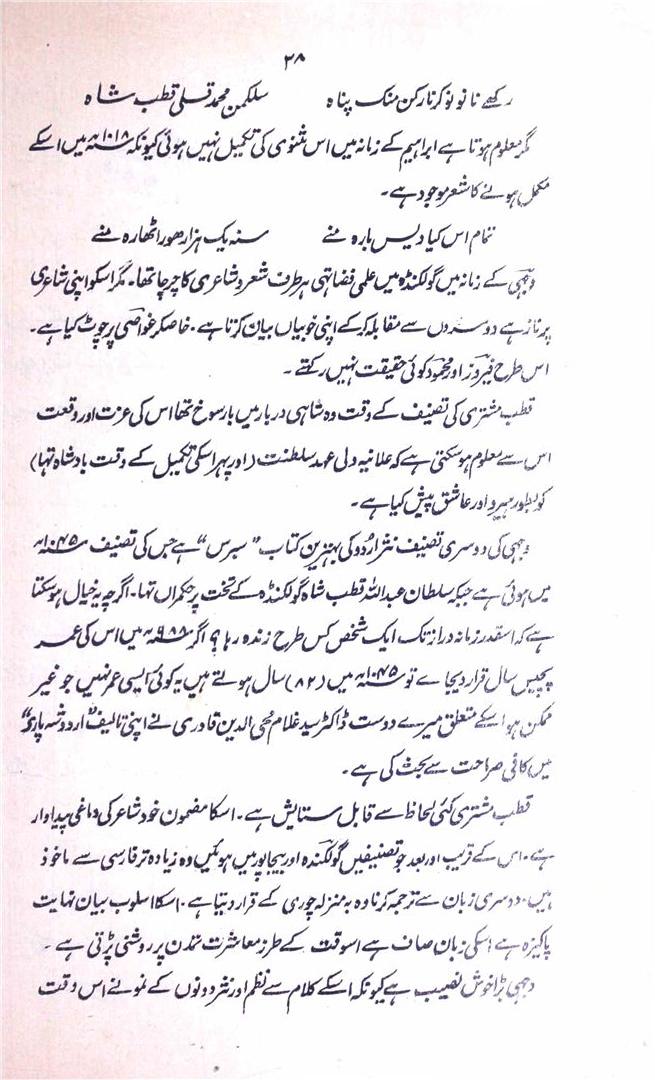 ۲۸
رکھے نانو نوکر نار کن منک پناہ سلکمن محمد قلی قطب شاہ
مگر معلوم ہوتا ہے ابراہیم کے زمانہ میں اس مثنوی کی تکمیل نہیں ہوئی کیونکہ سنہ ۱۰۱۸ھ میں اسکے
مکمل ہونے کا شعر موجود ہے۔
تمام اس کیا دیس بارہ منے سنہ یک ہزار ھور اٹھارہ منے
وجہی کے زمانہ میں گولکنڈہ میں علمی فضا تہی ہر طرف شعر و شاعری کا چرچا تھا۔ مگر اسکو اپنی شاعری
پر ناز ہے دوسروں سے مقابلہ کر کے اپنی خوبیاں بیان کرتا ہے۔ خاصکر غواصی پر چوٹ کیا ہے۔
اس طرح فیروز اور محمود کوئی حقیقت نہیں رکتے۔
قطب مشتری کی تصنیف کے وقت وہ شاہی دربار میں بارسوخ تھا اس کی عزت اور وقعت
اس سے معلوم ہو سکتی ہے کہ علانیہ ولی عہد سلطنت (اور پہر اسکی تکمیل کے وقت بادشاہ تہا)
کو بطور ہیرو اور عاشق پیش کیا ہے۔
وجہی کی دوسری تصنیف نثر اردو کی بہترین کتاب "سبرس" ہے جس کی تصنیف سنہ ۱۰۴۵ھ
میں ہوئی ہے جبکہ سلطان عبداللہ قطب شاہ گولکنڈہ کے تخت پر حکمراں تہا۔ اگرچہ یہ خیال ہو سکتا
ہے کہ اسقدر زمانہ دراز تک ایک شخص کس طرح زندہ رہا؟ اگر سنہ ۹۸۸ھ میں اس کی عمر
پچیس سال قرار دیجاے تو سنہ ۱۰۴۵ھ میں (۸۲) سال ہوتے ہیں یہ کوئی ایسی عمر نہیں جو غیر
ممکن ہو اسکے متعلق میرے دوست ڈاکٹر سید غلام محی الدین قادری نے اپنی تالیف "اردو شہ پارے"
میں کافی صراحت سے بحث کی ہے۔
قطب مشتری کئی لحاظ سے قابل ستایش ہے۔ اسکا مضمون خود شاعر کی دماغی پیداوار
ہے۔ اس کے قریب اور بعد جو تصنیفیں گولکنڈہ اور بیجاپور میں ہوئیں وہ زیادہ تر فارسی سے ماخوذ
ہیں۔ دوسری زبان سے ترجمہ کرنا وہ بہ منزلہ چوری کے قرار دیتا ہے۔ اسکا اسلوب بیان نہایت
پاکیزہ ہے اسکی زبان صاف ہے اسوقت کے طرز معاشرت تمدن پر روشنی پڑتی ہے۔
وجہی بڑا خوش نصیب ہے کیونکہ اسکے کلام سے نظم اور نثر دونوں کے نمونے اس وقت